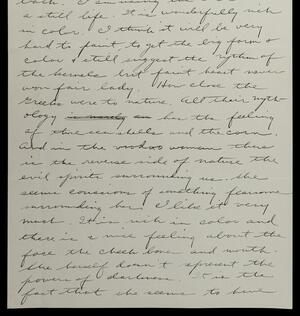 a still life. It is wonderfully rich
in color. I think it will be very
hard to paint, to get the big form &
color & still suggest the rythm of
the kernels but faint heart never
won fair lady. How close the
Greeks were to nature. All their myth-
ology is merely an has the feeling
of these sea shells and the corn
And in the voodoo woman there
is the reverse side of nature the
evil spirits surrounding us. She
seems conscious of something fearsome
surrounding her I like it very
much. It is rich in color and
there is a nice feeling about the
face the cheek bone and mouth.
She herself don't represent the
powers of darkness. It is the
fact that she seems to have